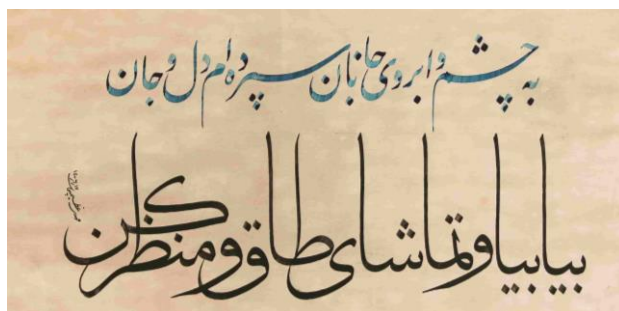 به چشم و ابروی جانان سپرده‌ام دل و جان
بیا بیا و تماشای طاق و منظر کن